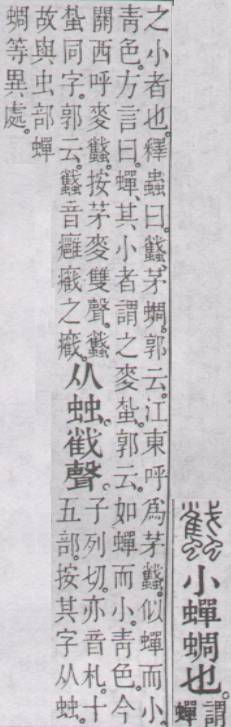 蠽小蟬蜩也。謂蟬
之小者也。釋蟲曰。蠽、茅蜩。郭云。江東呼爲茅蠽。似蟬而小。
靑色。方言曰。蟬、其小者謂之麥蚻。郭云。如蟬而小。靑色。今
關西呼麥蠽。按茅麥雙聲。蠽
蚻同字。郭云。蠽音癰癤之癤。
从䖵。㦰聲。
子列切。亦音札。十
五部。按其字从䖵。
故與虫部蟬
蜩等異處。